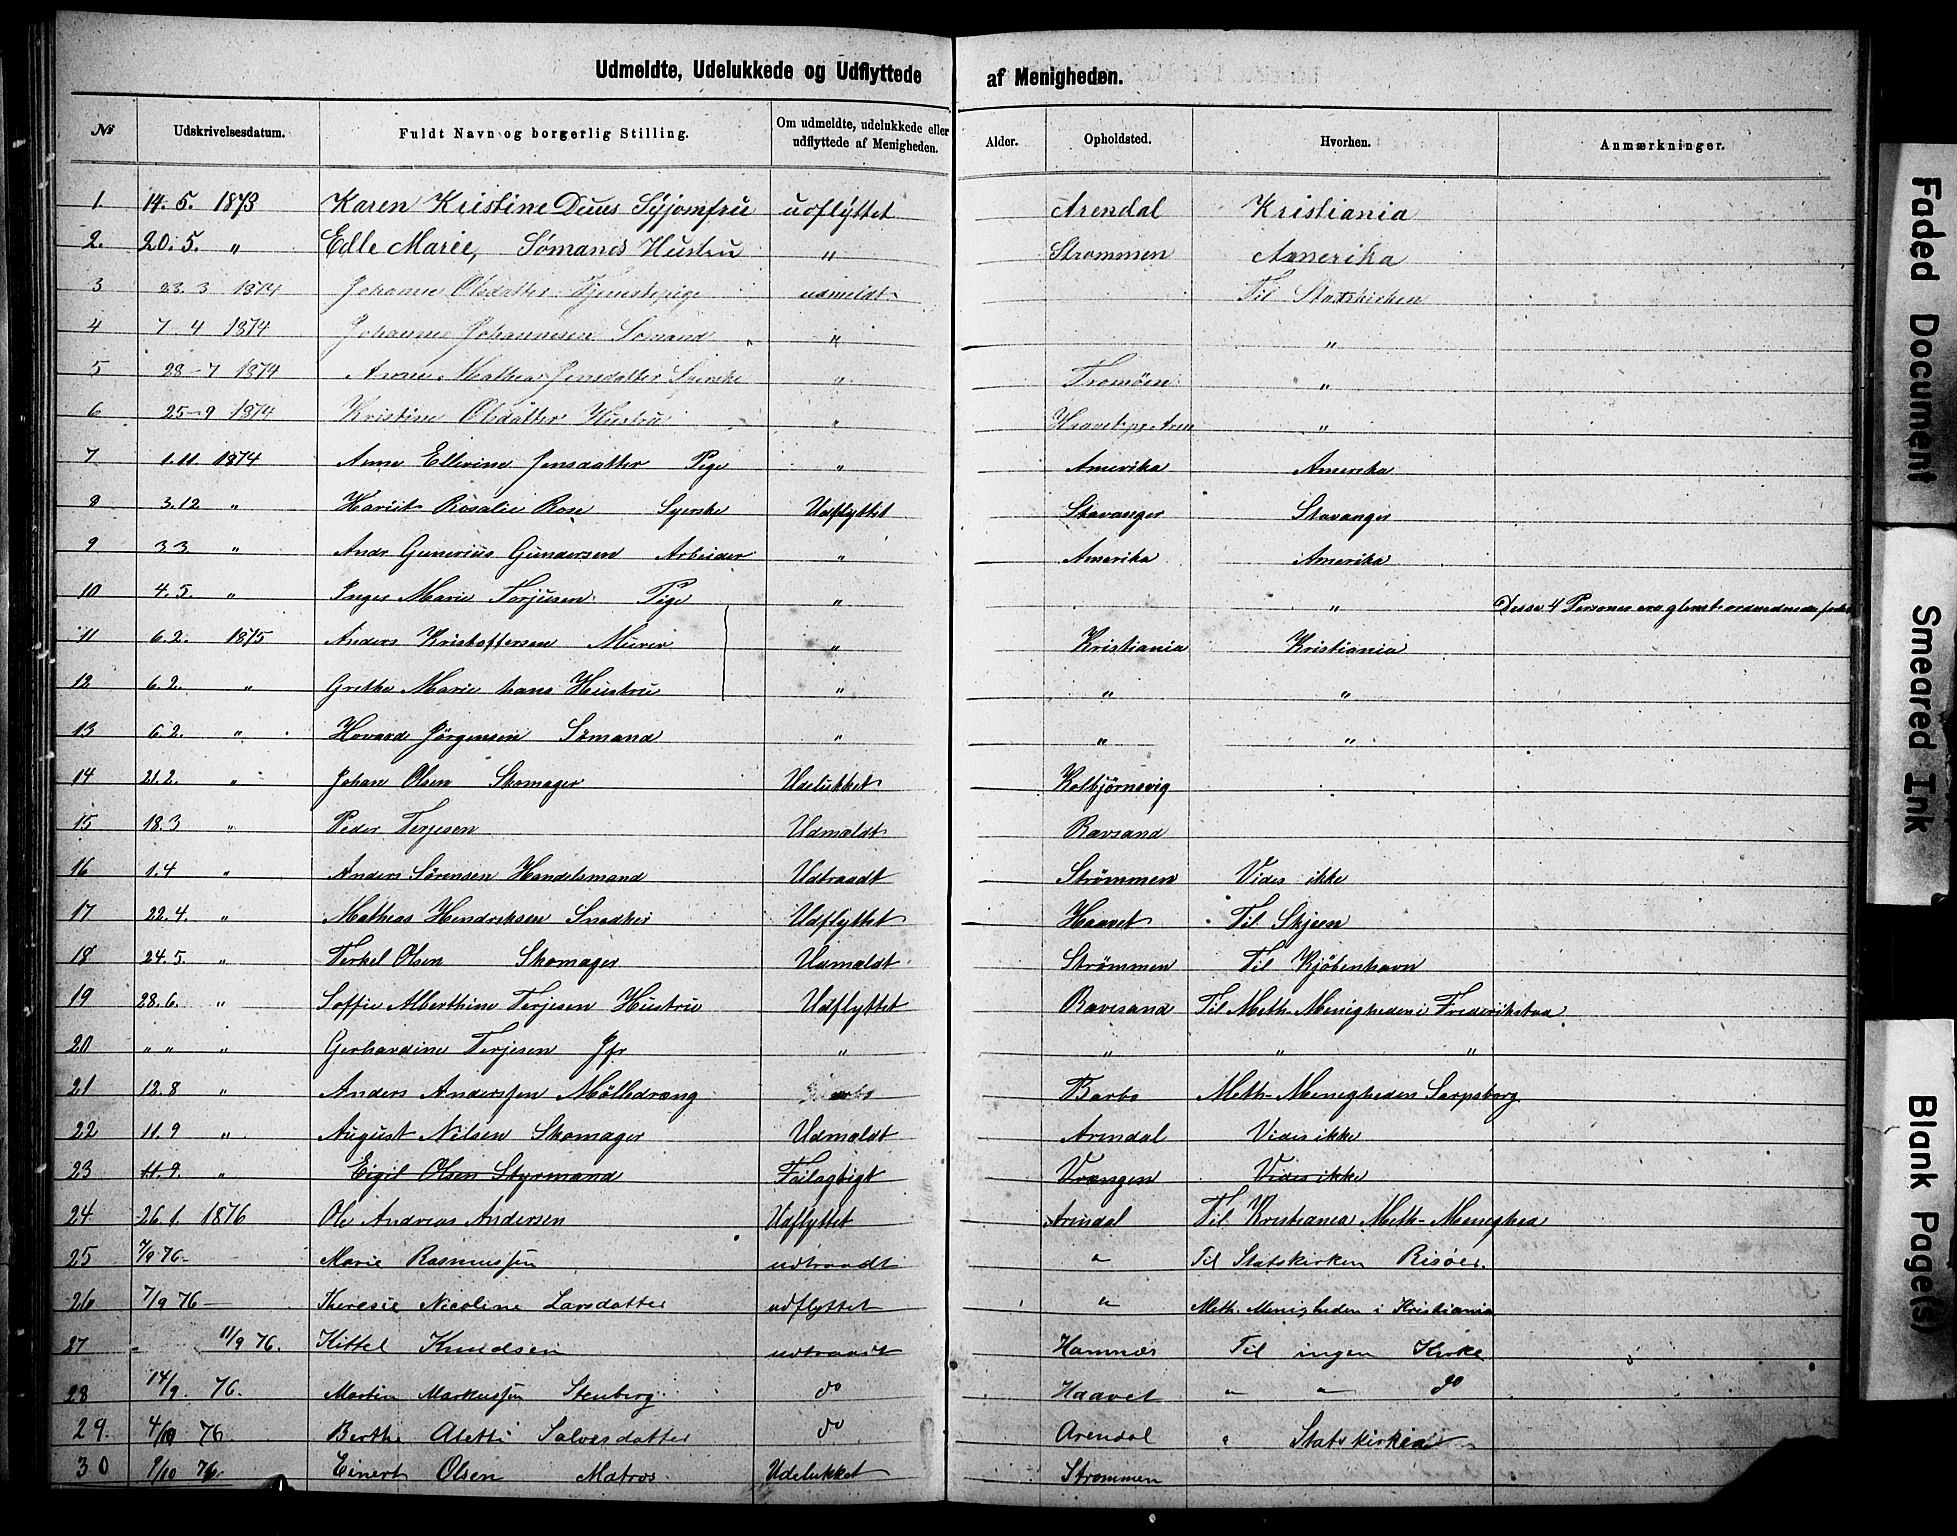 Udmeldte, Udelukkede og Udflyttede af Menigheden.
No Udskrivelsesdatum. Fuldt Navn og borgerlig Stilling. Om udmeldte, udelukkede eller udflyttede af Menigheden. Alder. Opholdsted. Hvorhen. Anmærkninger.
1. 14. 5. 1873 Karen Kristine Duus Syjomfru udflyttet Arendal Kristiania
2. 20. 5. " Edle Marie, Sømands Hustru " Strømmen Amerika
3 23. 3 1874 Johanne Olsdatter Tjenestepige udmeldt Til Statskirken
4 7 4 1874 Johannes Johannesen Sømand " "
5 28-7 1874 Anne Mathea Jensdatter Syerske " Tromøen "
6 25-9 1874 Kristine Olsdatter Hustru " "
7 1.11 1874 Anne Ellevine Jensdatter Pige " Amerika Amerika
8 3.12 " Rosalie Rose Syerske Udflyttet Stavanger Stavanger
9 3 3 " Andr. Gunerius Gundersen Arbeider " Amerika Amerika
10 4.5. " Inger Marie Torjusen Pige " " Disse 4 Personer
11 6.2. 1875 Anders Kristoffersen Murer " Kristiania Kristiania
12 6.2. " Grethe Marie hans Hustru " " "
13 6 2. " Hovard Jørgensen Sømand " " "
14 21.2. " Johan Olsen Skomager Udelukket Kolbjørnsvig
15 18.3 " Peder Terjesen Udmældt Ravsand
16 1.4 " Anders Sørensen Handelsmand Udtraadt Strømmen Vides ikke
17 22.4. " Mathias Hendriksen Snedker Udflyttet Haavet Til Skjeen
18 24.5. " Terkel Olsen Skomager Udmældt Strømmen Til Kjøbenhavn
19 28.6. " Soffie Alberthine Terjesen Hustru Udflyttet Ravesand Til Meth. Menigheden i Frederikstad
20 " " " Gerhardine Terjesen Jfr " " " "
21 12.8 " Anders Anderssen Mølledreng Barbo Meth-Menigheden Sarpsborg
22 11.9 " August Nilsen Skomager Udmældt Arendal Vides ikke
23 11.9. " Eigil Olsen Styrmand Feilagtigt Vrengen Vides ikke
24 26.1. 1876 Ole Andreas Andersen Udflyttet Arendal Til Kristiania Meth-Menighed
25 7/9 76- Marie Rasmussen udtraadt " Til Statskirken Risøer.
26 7/9 76- Theresie Nicoline Larsdatter udflyttet " Meth. Menigheden i Kristiania
27 11/9 76. Kittel Knudsen udtraadt Hamnæs Til ingen Kirke
28 14/9. 76. Martin Markussen Stenberg do Haavet " " do
29. 4/10 76 Berthe Alette Salvesdatter do Arendal " Statskirken
30 9/10 76. Einert Olsen Matros Udelukket Strømmen
Faded Document
Smeared Ink
Blank Page(s)